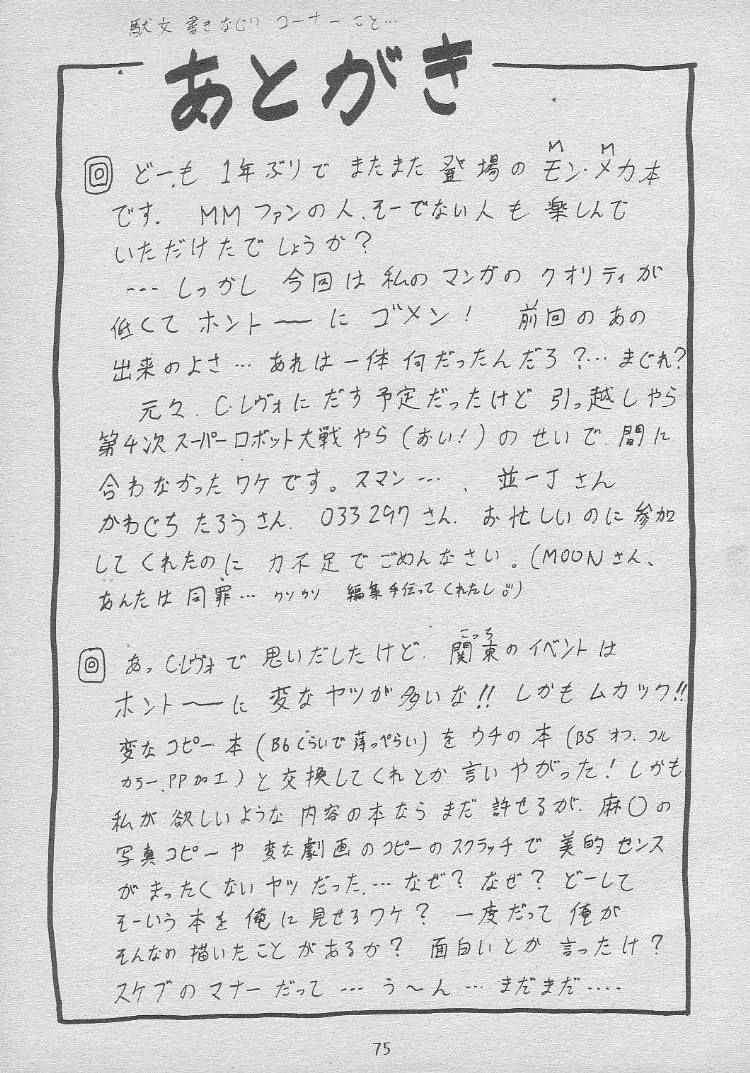 駄文書きなぐりコーナーこと…
あとがき
どーも 1年ぶりで またまた 登場の モン・メカ本
M M
です. MMファンの人、そーでない人も 楽しんで
いただけたでしょうか?
… しっかし 今回は 私の マンガの クオリティが
低くて ホントーーに ゴメン! 前回のあの
出来のよさ… あれは一体 何だったんだろ?… まぐれ?
元々、C・レヴォに だす 予定だったけど 引っ越しやら
第4次 スーパーロボット大戦 やら (おい!) の せいで 間に
合わなかったワケです。スマン…、並一丁さん
かわぐち たろうさん、033297さん、お忙しいのに 参加
してくれたのに 力不足で ごめんなさい。(MOONさん、
あんたは 同罪… ウソウソ 編集手伝って くれたし)
あっ C・レヴォで 思いだしたけど、関東のイベントは
こっち
ホントーーに 変なヤツが 多いな!! しかも ムカック!!
変な コピー本 (B6くらいで 薄っぺらい) を ウチの 本 (B5 オフ、フル
カラー、PP加工) と 交換してくれとか 言いやがった! しかも
私が 欲しいような 内容の本なら まだ 許せるが、麻〇の
写真コピーや 変な劇画のコピーのスクラッチで 美的 センス
がまったくない ヤツだった、… なぜ? なぜ? どーして
そーいう 本を 俺に 見せるワケ? 一度だって 俺が
そんなの 描いたことが あるか? 面白いとか 言ったけ?
スケブの マナーだって … う〜ん … まだまだ ….
75